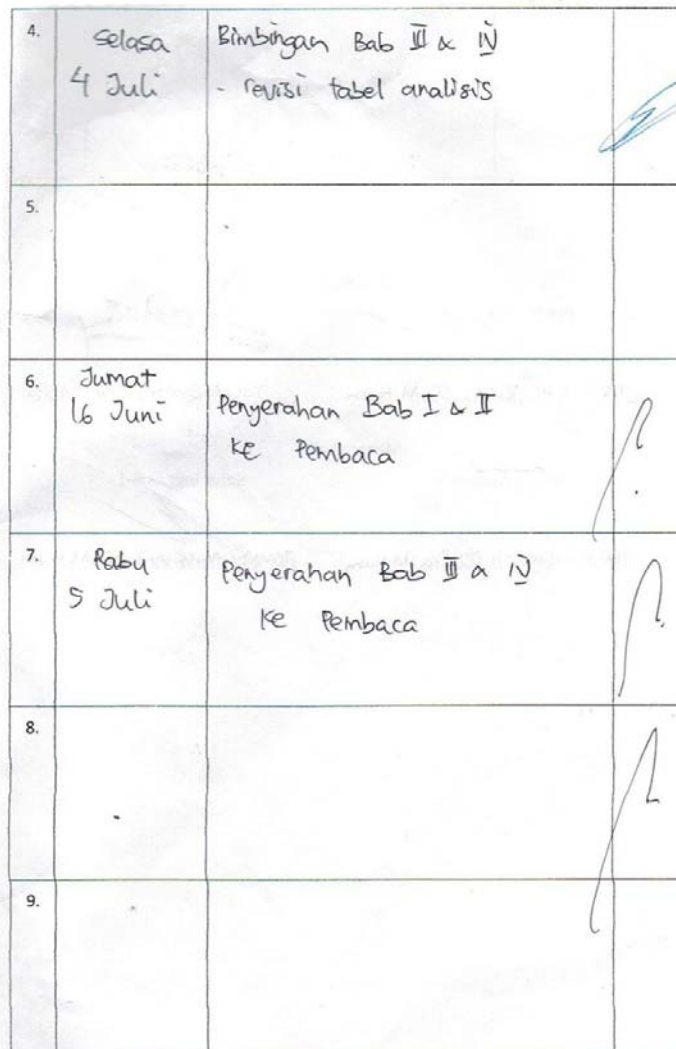 4.
Selasa
4 Juli
Bimbingan Bab III & IV
- revisi tabel analisis
5.
6.
Jumat
16 Juni
Penyerahan Bab I & II
ke Pembaca
7.
Rabu
5 Juli
Penyerahan Bab III & IV
ke Pembaca
8.
9.